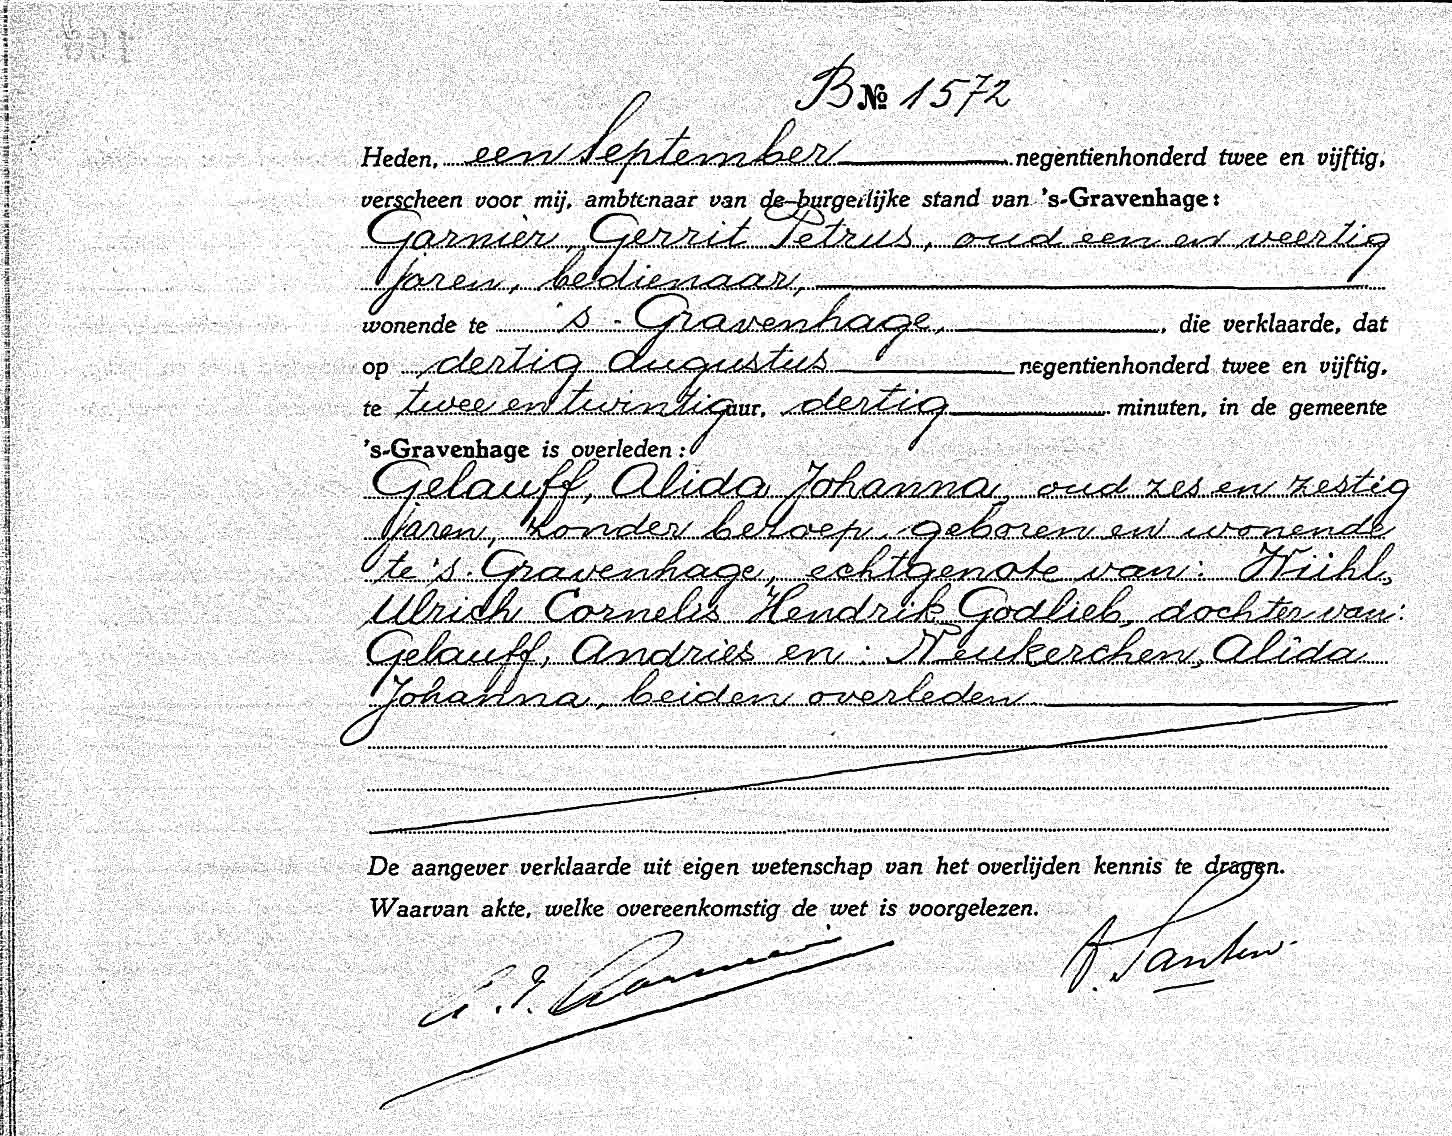 B № 1572
Heden, een September negentienhonderd twee en vijftig,
verscheen voor mij, ambtenaar van de burgerlijke stand van 's-Gravenhage:
Garnier, Gerrit Petrus, oud een en veertig
jaren, bedienaar,
wonende te 's-Gravenhage, , die verklaarde, dat
op dertig augustus negentienhonderd twee en vijftig,
te twee en twintig uur, dertig minuten, in de gemeente
's-Gravenhage is overleden:
Gelauff, Alida Johanna, oud zes en zestig
jaren, zonder beroep, geboren en wonende
te 's-Gravenhage, echtgenote van: Kühl,
Ulrich Cornelis Hendrik Godlieb, dochter van:
Gelauff, Andries en: Neukerchen, Alida
Johanna, beiden overleden.
De aangever verklaarde uit eigen wetenschap van het overlijden kennis te dragen.
Waarvan akte, welke overeenkomstig de wet is voorgelezen.